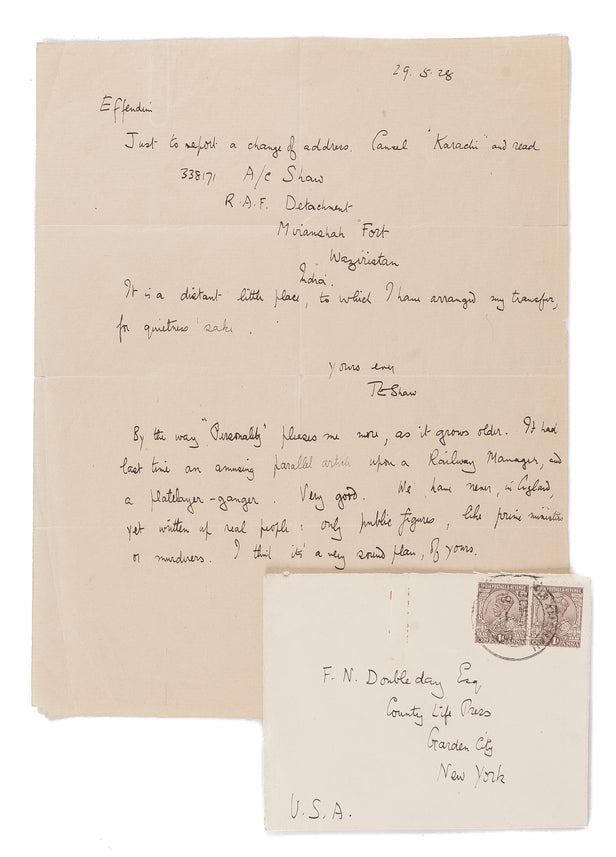 29.5.28
Effendim
Just to report a change of address. Cancel "Karachi" and read
338171 A/c Shaw
R.A.F. Detachment
Miranshah Fort
Waziristan
India.
It is a distant little place, to which I have arranged my transfer,
for quietness' sake.
Yours ever
TEShaw
By the way "Personality" pleases me more, as it grows older. It had
last time an amusing parallel article upon a Railway Manager, and
a platelayer-ganger Very good. We have never, in England,
yet written up real people: only public figures, like prime ministers
or murderers. I think it's a very sound plan, of yours.
INDIA POSTAGE & REVENUE
INDIA POSTAGE & REVENUE
F. N. Doubleday Esq
Country Life Press
Garden City
New York
U.S.A.